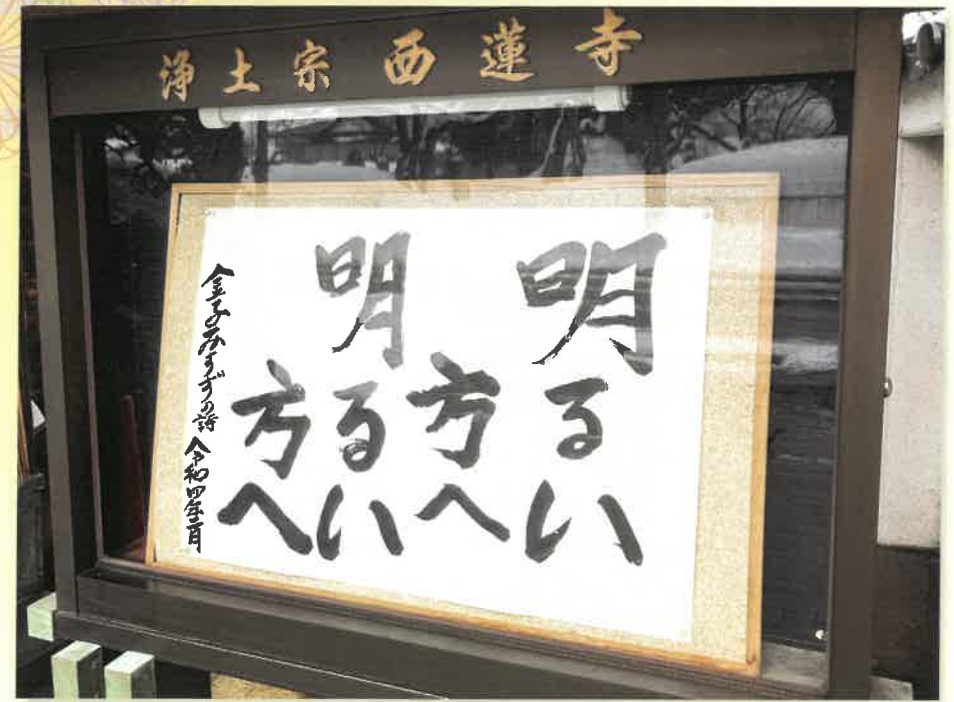 浄土宗 西蓮寺
明るい
方へ
明るい
方へ
金子みすゞの詩 令和四年二月